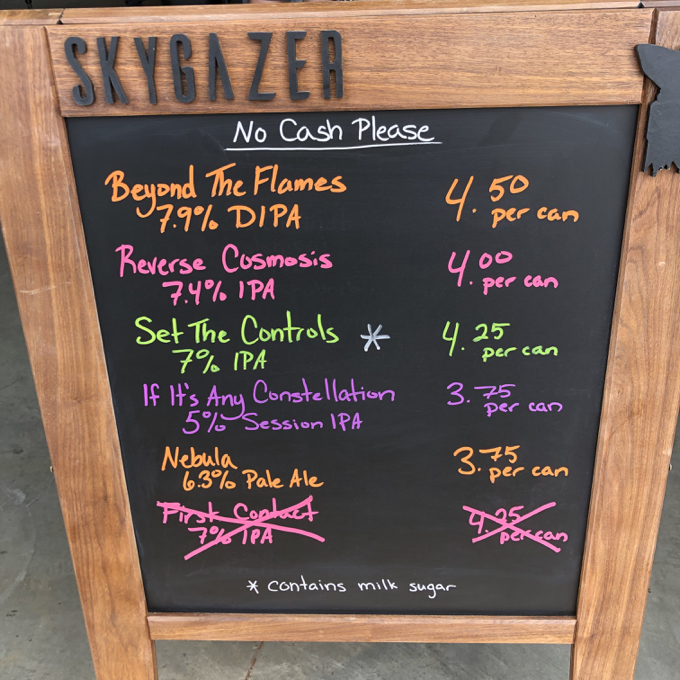 SKYGAZER
No Cash Please
Beyond The Flames 4.50
7.9% DIPA per can
Reverse Cosmosis 4.00
7.4% IPA per can
Set The Controls * 4.25
7% IPA per can
If It's Any Constellation 3.75
5% Session IPA per can
Nebula 3.75
6.3% Pale Ale per can
First Contact 4.25
7% IPA per can
* contains milk sugar